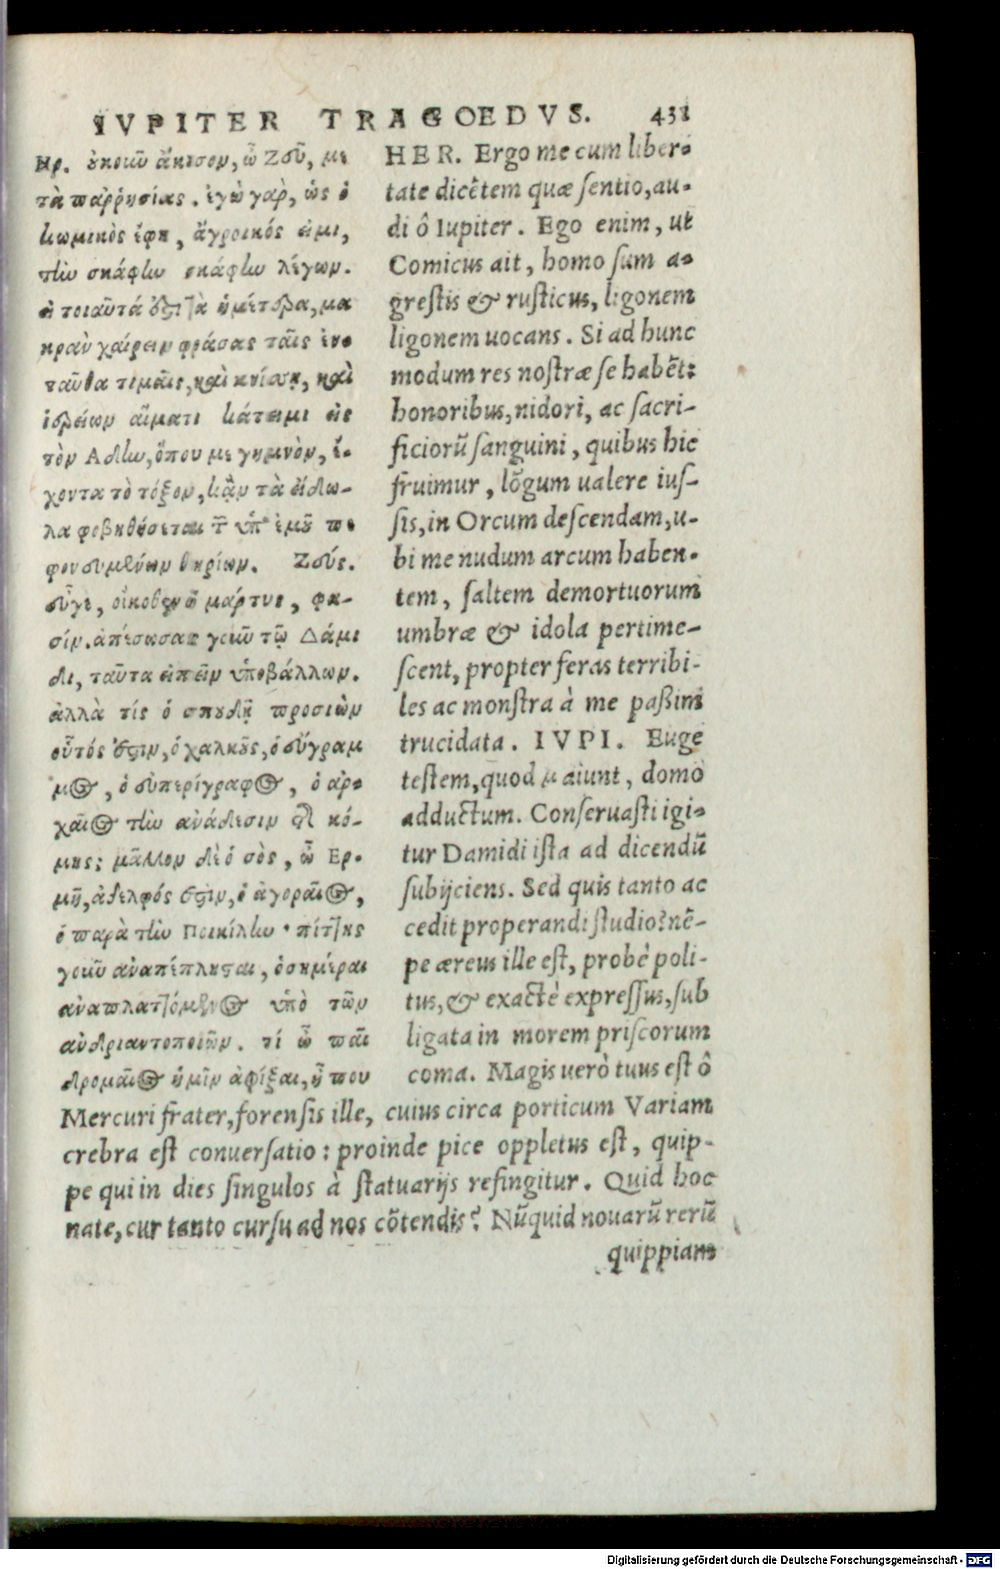 IVPITER TRAGOEDVS. 431
Ηρ. ὀκοιῶ ἄκουσον, ὦ Ζεῦ, με
τὰ παῤῥησίας. ἐγὼ γὰρ, ὡς ὁ
κωμικὸς ἔφη, ἄγροικός εἰμι,
τὴν σκάφην σκάφην λέγων.
εἰ τοιαῦτά ἐστι τὰ ἡμέτερα, μα
κρὰν χαίρειν φράσας ταῖς ἐν
ταῦθα τιμαῖς, καὶ κνίσῃ, καὶ
ἱερείων αἵματι κάτειμι εἰς
τὸν Αδην, ὅπου με γυμνὸν, ἔ-
χοντα τὸ τόξον, κἂν τὰ εἴδω-
λα φοβηθήσεται τ ὑπ' ἐμοῦ πε
φονευμένων θηρίων. Ζεύς.
εὖγε, οἴκοθεν ὁ μάρτυς, φα-
σίν. ἀπέσωσας γοῦν τῷ Δάμι
δι, ταῦτα εἰπεῖν ὑποβάλλων.
ἀλλὰ τίς ὁ σπουδῇ προσιὼν
οὗτός ἐστιν, ὁ χαλκοῦς, ὁ εὔγραμ
μος, ὁ εὐπερίγραφος, ὁ ἀρ-
χαῖος τὴν ἀνάδεσιν τ κό-
μης; μᾶλλον δὲ ὁ σὸς, ὦ Ερ-
μῆ, ἀδελφός ἐστιν, ὁ ἀγοραῖος,
ὁ παρὰ τὴν Ποικίλην· πίττης
γοῦν ἀναπέπλησται, ὁσημέραι
ἀναπλαττόμενος ὑπὸ τῶν
ἀνδριαντοποιῶν. τί ὦ παῖ
δρομαῖος ἡμῖν ἀφῖξαι, ἦ που
HER. Ergo me cum liber-
tate dicẽtem quæ sentio, au-
di ô Iupiter. Ego enim, ut
Comicus ait, homo sum a-
grestis & rusticus, ligonem
ligonem uocans. Si ad hunc
modum res nostræ se habẽt:
honoribus, nidori, ac sacri-
ficiorũ sanguini, quibus hic
fruimur, lõgum ualere ius-
sis, in Orcum descendam, u-
bi me nudum arcum haben-
tem, saltem demortuorum
umbræ & idola pertime-
scent, propter feras terribi-
les ac monstra à me paßim
trucidata. IVPI. Euge
testem, quod aiunt, domo
adductum. Conseruasti igi-
tur Damidi ista ad dicendũ
subijciens. Sed quis tanto ac
cedit properandi studio? nẽ-
pe æreus ille est, probè poli-
tus, & exactè expressus, sub
ligata in morem priscorum
coma. Magis uerò tuus est ô
Mercuri frater, forensis ille, cuius circa porticum Variam
crebra est conuersatio: proinde pice oppletus est, quip-
pe qui in dies singulos à statuarijs refingitur. Quid hoc
nate, cur tanto cursu ad nos cõtendis? Nũquid nouarũ rerũ
quippiam
Digitalisierung gefördert durch die Deutsche Forschungsgemeinschaft - DFG